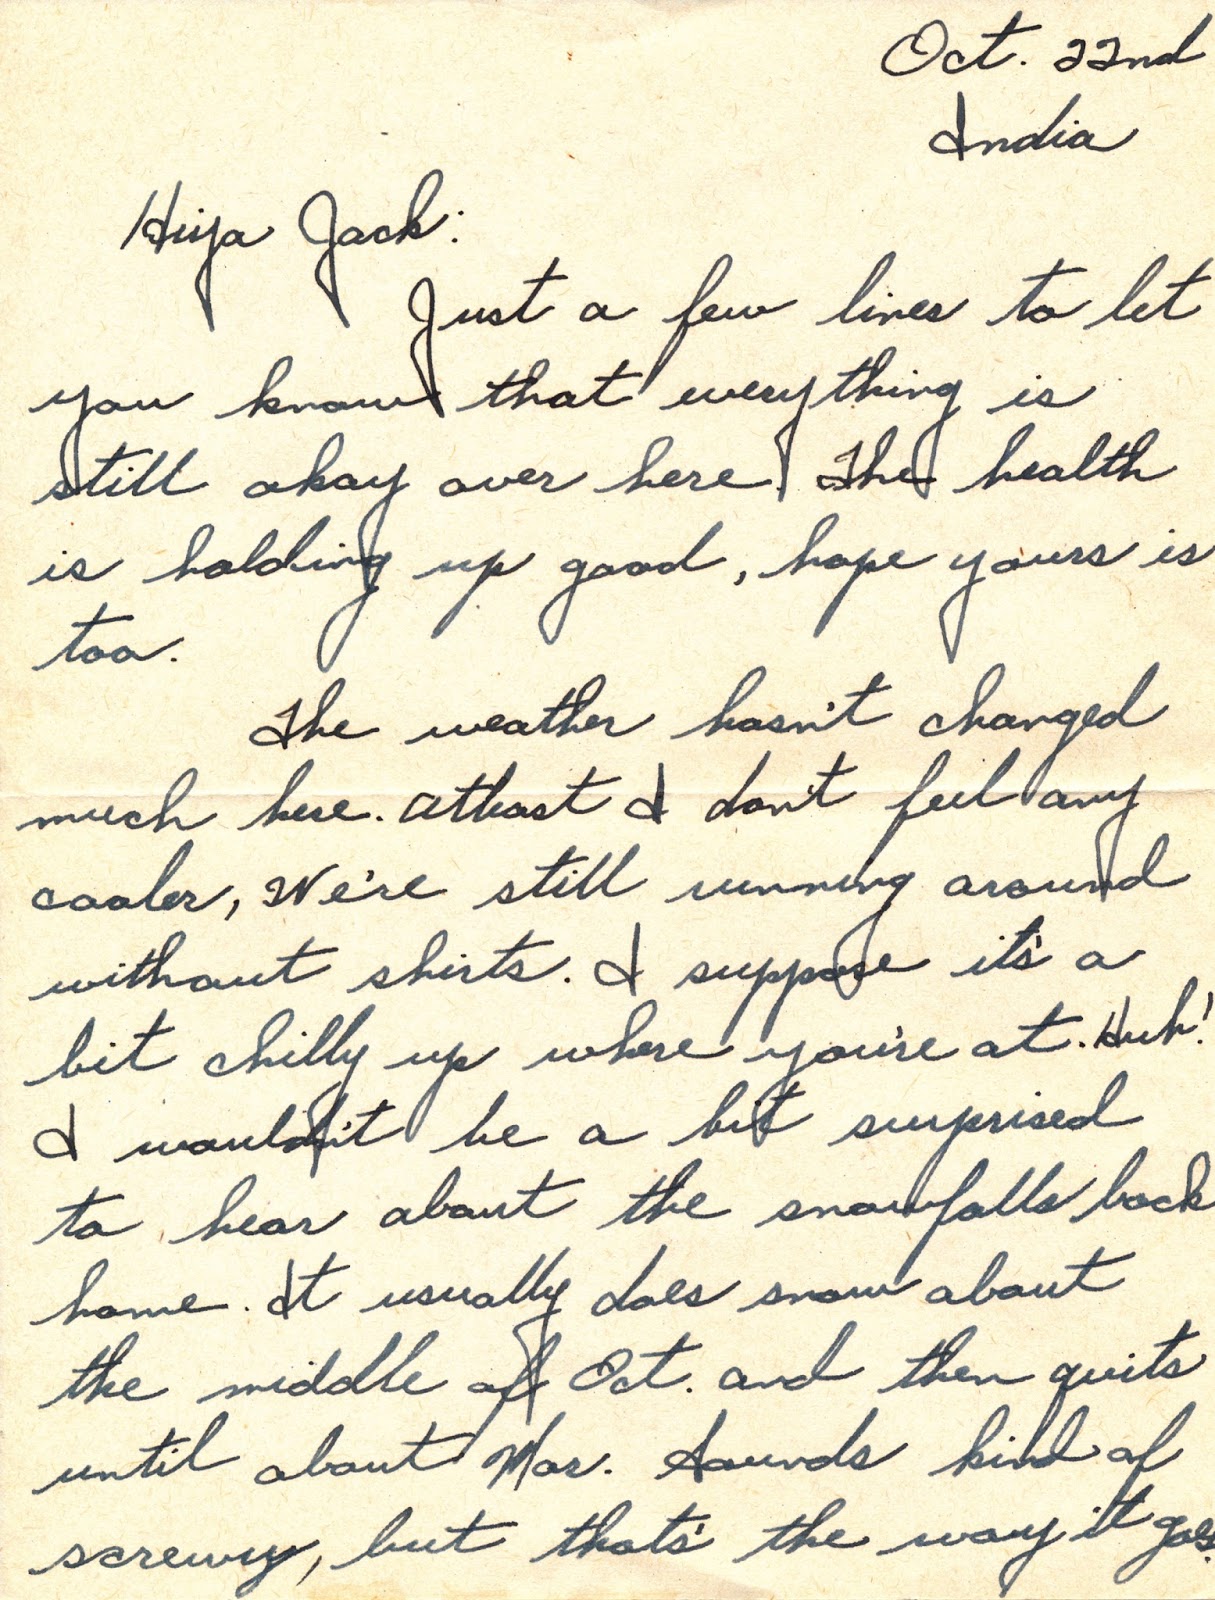 Oct. 22nd
India
Hiya Jack:
Just a few lines to let
you know that everything is
still okay over here. The health
is holding up good, hope yours is
too.
The weather hasn't changed
much here. Atleast I don't feel any
cooler, We're still running around
without shirts. I suppose it's a
bit chilly up where you're at. Huh!
I wouldn't be a bit surprised
to hear about the snowfalls back
home. It usually does snow about
the middle of Oct. and then quits
until about Mar. Sounds kind of
screwy, but that's the way it goes.